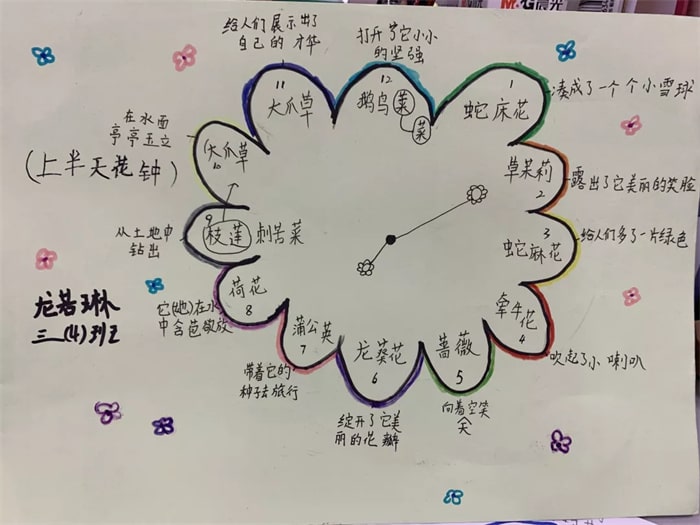 给人们展示出了
自己的才华
打开了它小小
的坚强
凑成了一个个小雪球
露出了它美丽的笑脸
给人们多了一片绿色
吹起了小喇叭
向着空笑
绽开了它美
丽的花瓣
带着它的
种子去旅行
它(她)在水
中含苞欲放
从土地中
钻出
在水面
亭亭玉立
(上半天花钟)
龙若琳
三(4)班
11
大爪草
12
鹅鸟菜
菜
1
蛇床花
草茉莉
2
3
蛇麻花
牵牛花
4
蔷薇
5
龙葵花
6
蒲公英
7
荷花
8
9
枝莲
刺苦菜
大爪草
10
M&G晨光